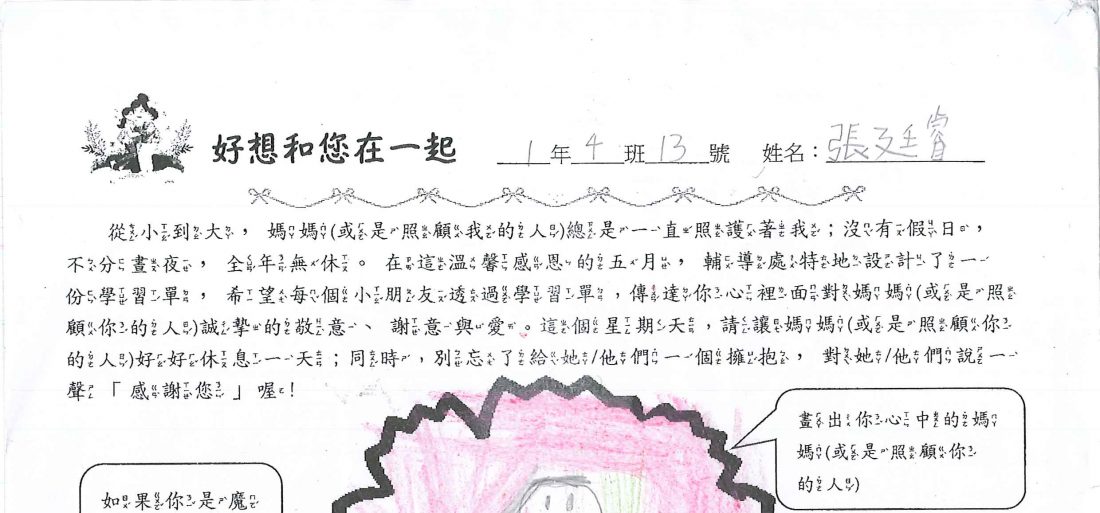 好想和您在一起 1年4班13號 姓名：張廷睿
從小到大，媽媽(或是照顧我的人)總是一直照護著我；沒有假日，
不分晝夜，全年無休。在這溫馨感恩的五月，輔導處特地設計了一
份學習單，希望每個小朋友透過學習單，傳達你心裡面對媽媽(或是照
顧你的人)誠摯的敬意、謝意與愛。這個星期天，請讓媽媽(或是照顧你
的人)好好休息一天；同時，別忘了給她/他們一個擁抱，對她/他們說一
聲「感謝您」喔!
畫出你心中的媽
媽(或是照顧你
的人)
如果你是魔